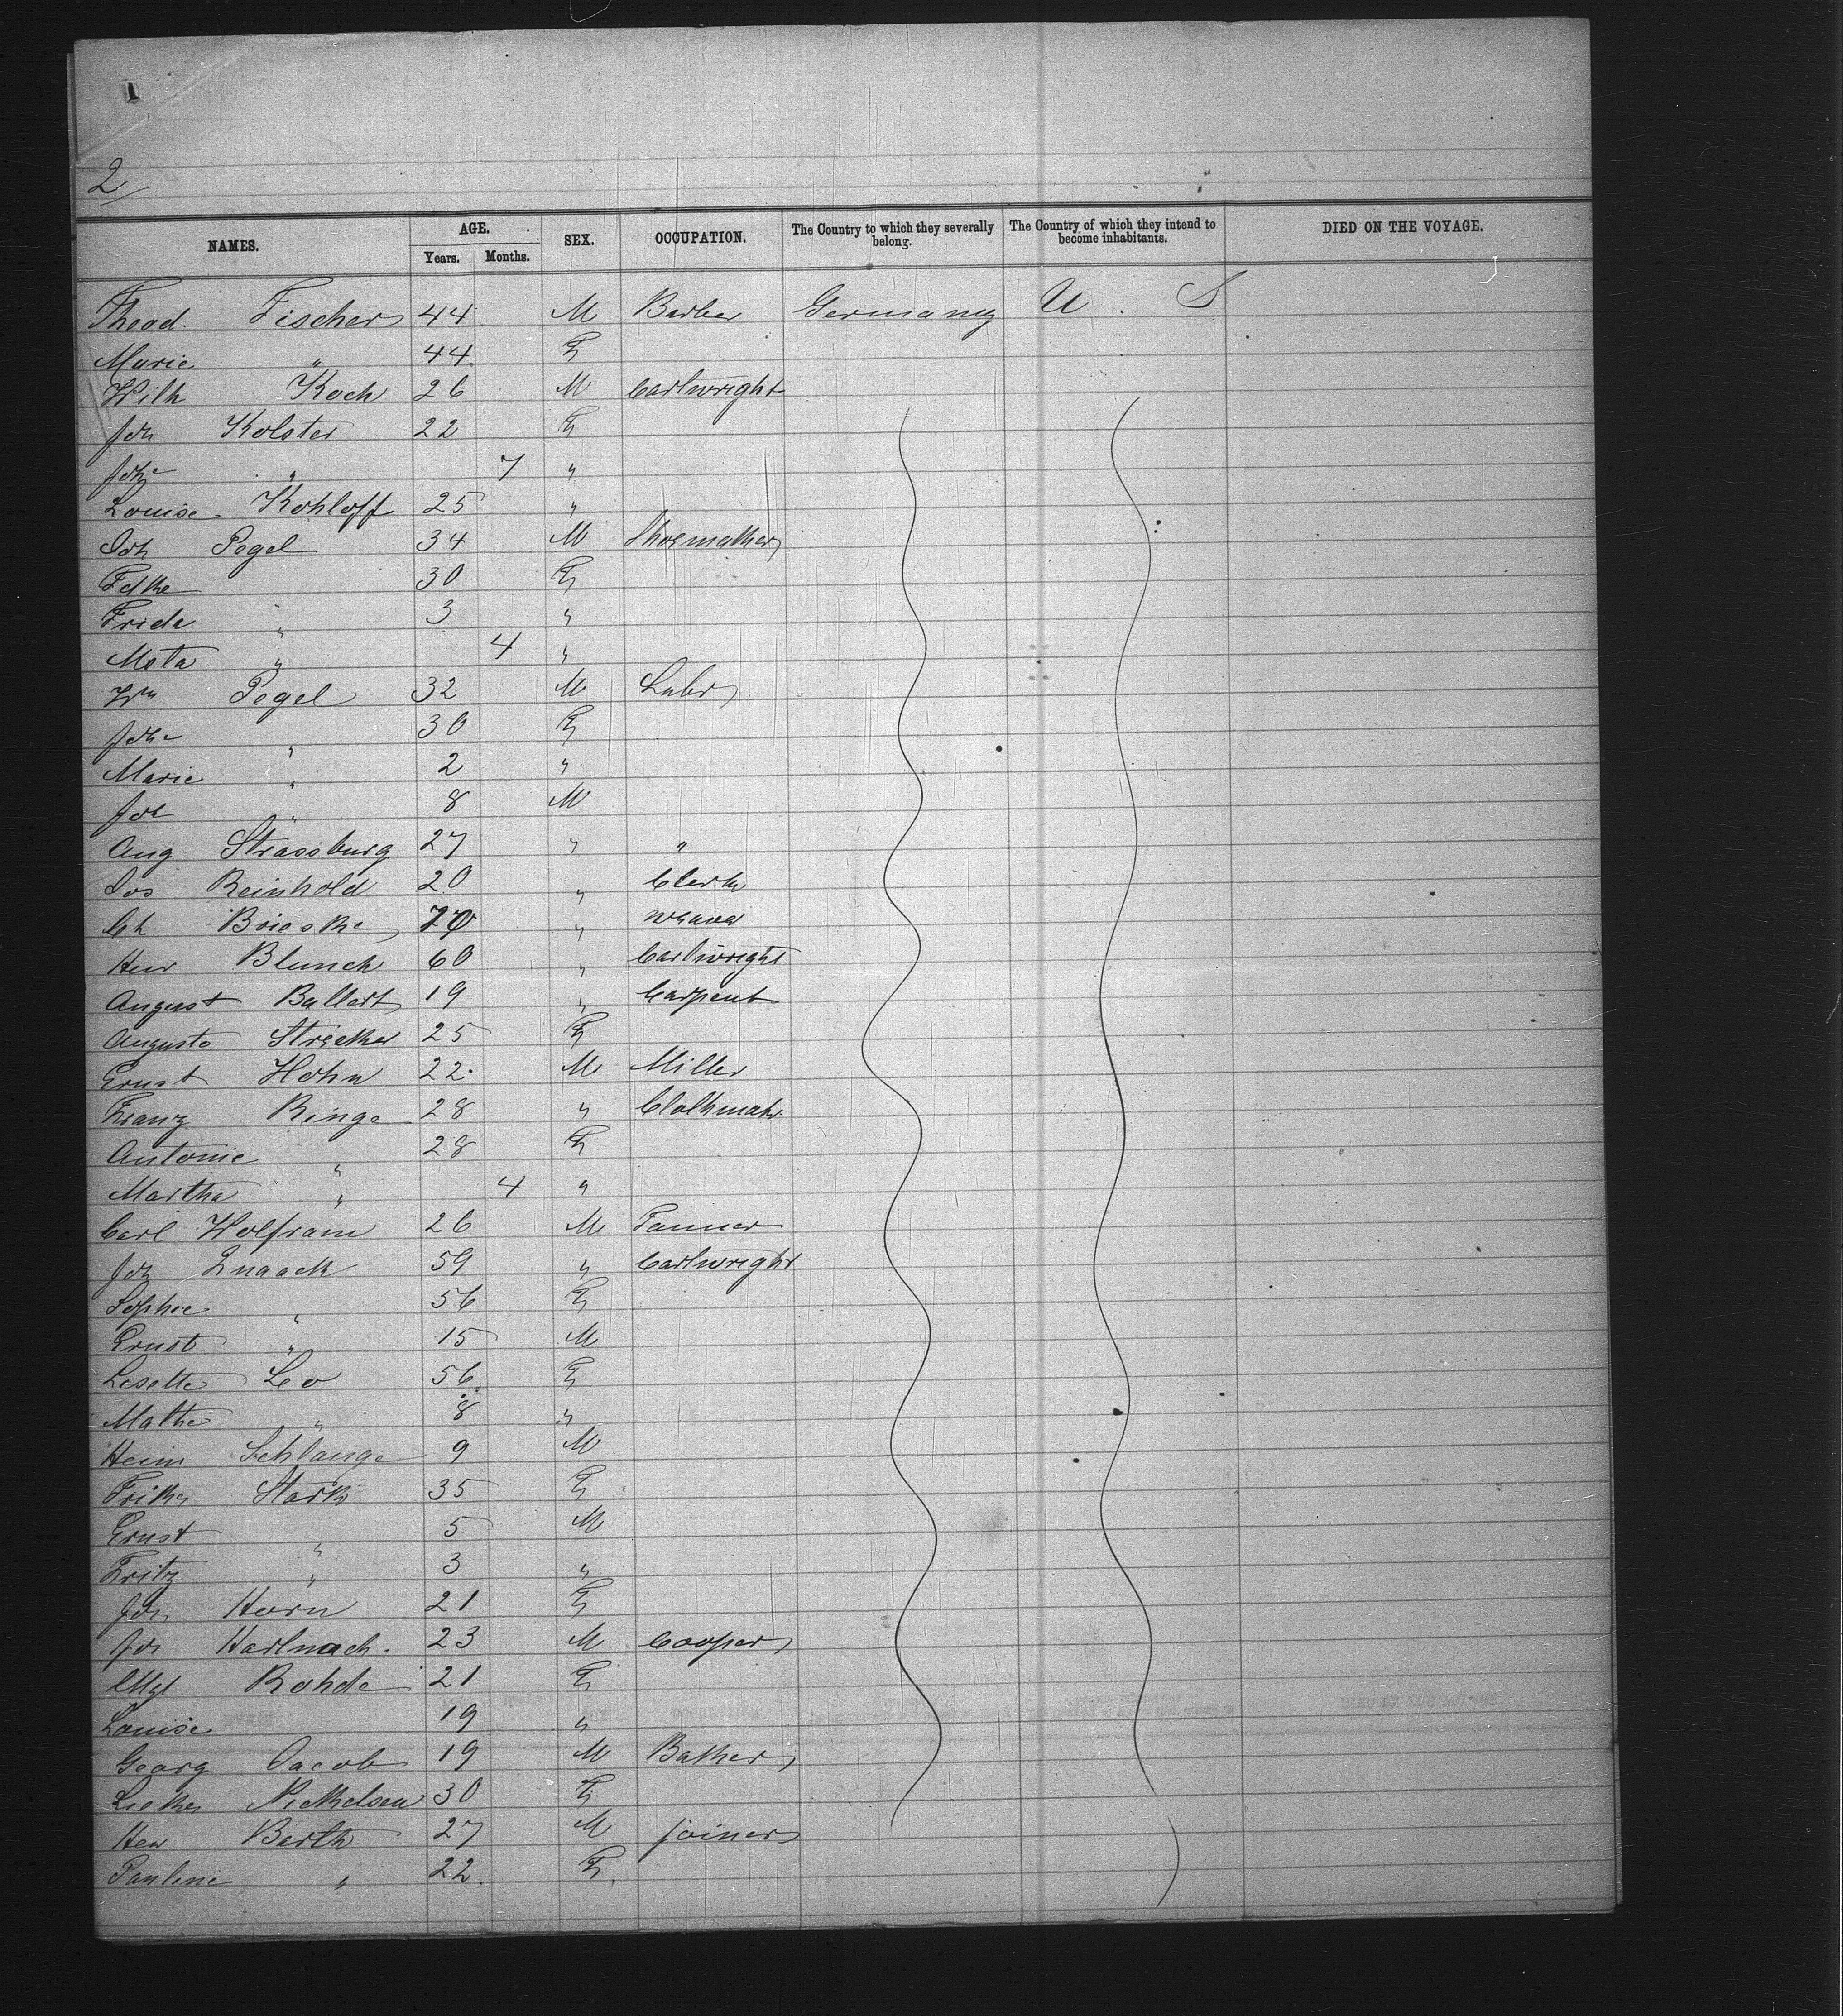 1
2
NAMES. AGE. Years. Months. SEX. OCCUPATION. The Country to which they severally belong. The Country of which they intend to become inhabitants. DIED ON THE VOYAGE.
Theod. Fischer 44 M Barber Germany U. S
Marie " 44 F
Wilh Koch 26 M Cartwright
Joh Kolster 22 F
Johe " 7 "
Louise Kohloff 25 "
Joh Pegel 34 M Shoemaker
Fdke 30 F
Frida " 3 "
Meta " 4 "
Wm Pegel 32 M Labr
Johe " 30 F
Marie " 2 "
Joh " 8 M
Aug Strassburg 27 " "
Jos Reinhold 20 " Clerk
Ch Brieske " weaver
Henr Blunck 60 " Cartwright
August Ballert 19 " Carpent
Auguste Strecker 25 F
Ernst Hohn 22 M Miller
Franz Ringe 28 " Clothmak
Antonie " 28 F
Martha " 4 "
Carl Wolfram 26 M Tanner
Joh Knaack 59 " Cartwright
Sophie " 56 F
Ernst " 15 M
Lisette Leo 56 F
Mathe " 8 "
Heinr Schlange 9 M
Frike Stark 35 F
Ernst " 5 M
Fritz " 3 "
Joh Horn 21 F
Joh 23 M Cooper
Rohde 21 F
Louise 19 "
Georg Jacob 19 M Baker
Nickelsen 30 F
Hen Barth 27 M joiner
Pauline " 22 F.